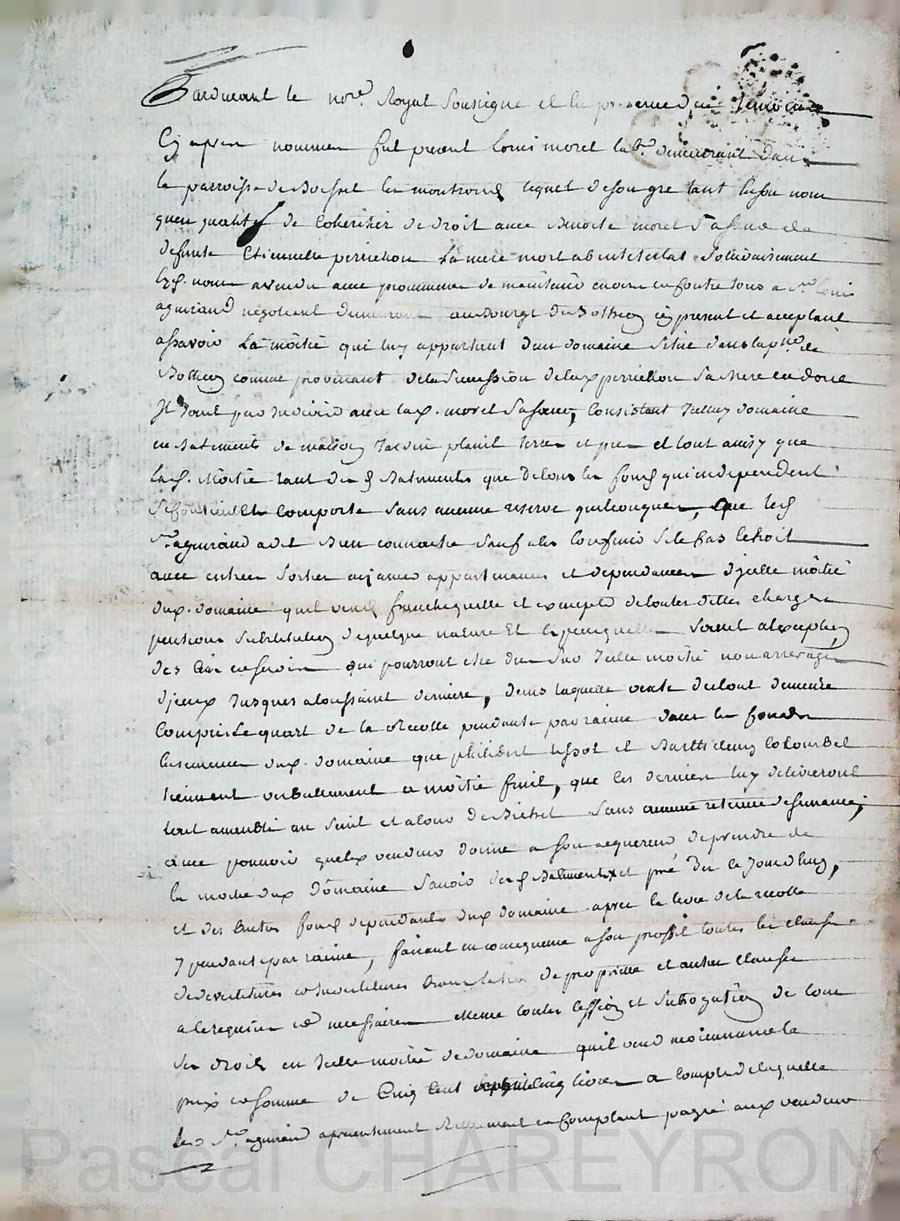 Pardevant le nore. Royal Soussigne et la presence des temoins
Cy apres nommes fut present Louis morel labr. demeurant dans
la parroisse de Boisset les montrond lequel de son gre tant en son nom
quen qualité de Coheritier de droit avec Benoite morel Sa soeur de la
defunte Etiennette perrichon La mere mort abintestat Solidairement
aud. nom a vendu avec promesse de maintenir envers et Contre tous a sr. Louis
aguiraud négotiant demeurant au Bourgt de Bothéon icy present et acceptant
assavoir La môitié qui luy appartient d'un domaine Situé dans la psse. de
Botheon comme provenant de la Succession de lad. perrichon Sa Mere encore
par indivis avec lad. morel Sa soeur, Consistant Jcelluy domaine
en Batiments de maison Jardin terres et pres et tout ainsy que
lad. Môitié tant desd. Batiments que de tous les fonds qui en dependent
Se Comporte Sans aucune reserve quelconques, que led.
sr. aguiraud a dit Bien connoitre Sauf a les Confiner Si le Cas lechoit
avec entrées Sorties aizances appartenances et dependances d'jcelle môitié
dud. domaine quil vend franche quitte et exempte de toutes dettes charges
pensions Substitution de quelque nature Et Sauf et excepté
des Cens et servis qui pourront etre dus Sur Jcelle moitié non arreragés
d'jceux Jusques a toussaint derniere, dans laquelle vente du tout demeure
Compris Le quart de la Recolte pendante par racine dans les fonds
dud. domaine que philibert et Barthelemy Colombet
tiennent verballement a môitié fruit, que les derniers luy delivreront
tout au Sans aucune retenue de semence,
avec pouvoir que led. vendeur donne a son acquereur de prendre
la moitié dud. Domaine Savoir desd. Batiments et pré Des ce Jourdhuy,
et des autres fonds dependants dud. domaine apres la levée de la recolte
y pendante par racine, faisant en consequence a son proffit toutes les clauses
de devestitures et investitures translation de proprieté et autres Clauses
a ce requises et necessaires meme toutes Cession et Subrogation de tous
Ses droits en Jcelle moitié de domaine quil vend moiennant le
prix et Somme de Cinq Cent livres a Compte de laquelle
led. sr. aguiraud a presentement Reellement et Comptant payé aud. vendeur
Pascal CHAREYRON